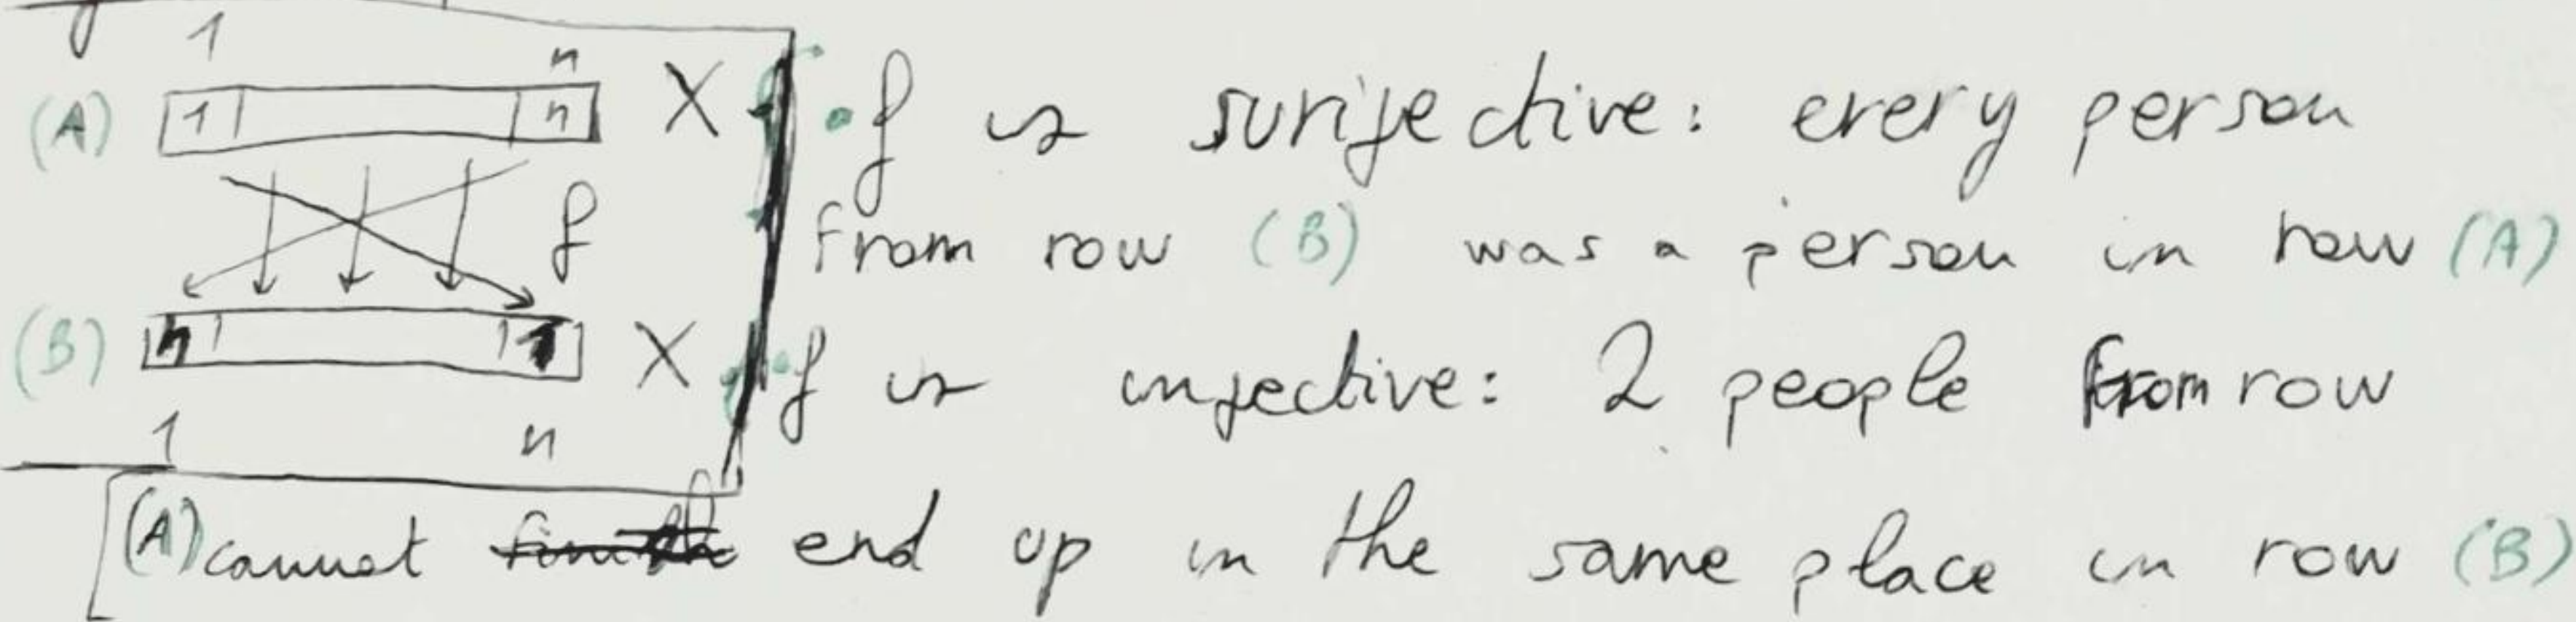 1 n
(A) 1 n X
f
(B) n 1 X
1 n
• f is surijective: every person
from row (B) was a person in row (A)
• f is injective: 2 people from row
(A) cannot end up in the same place in row (B)